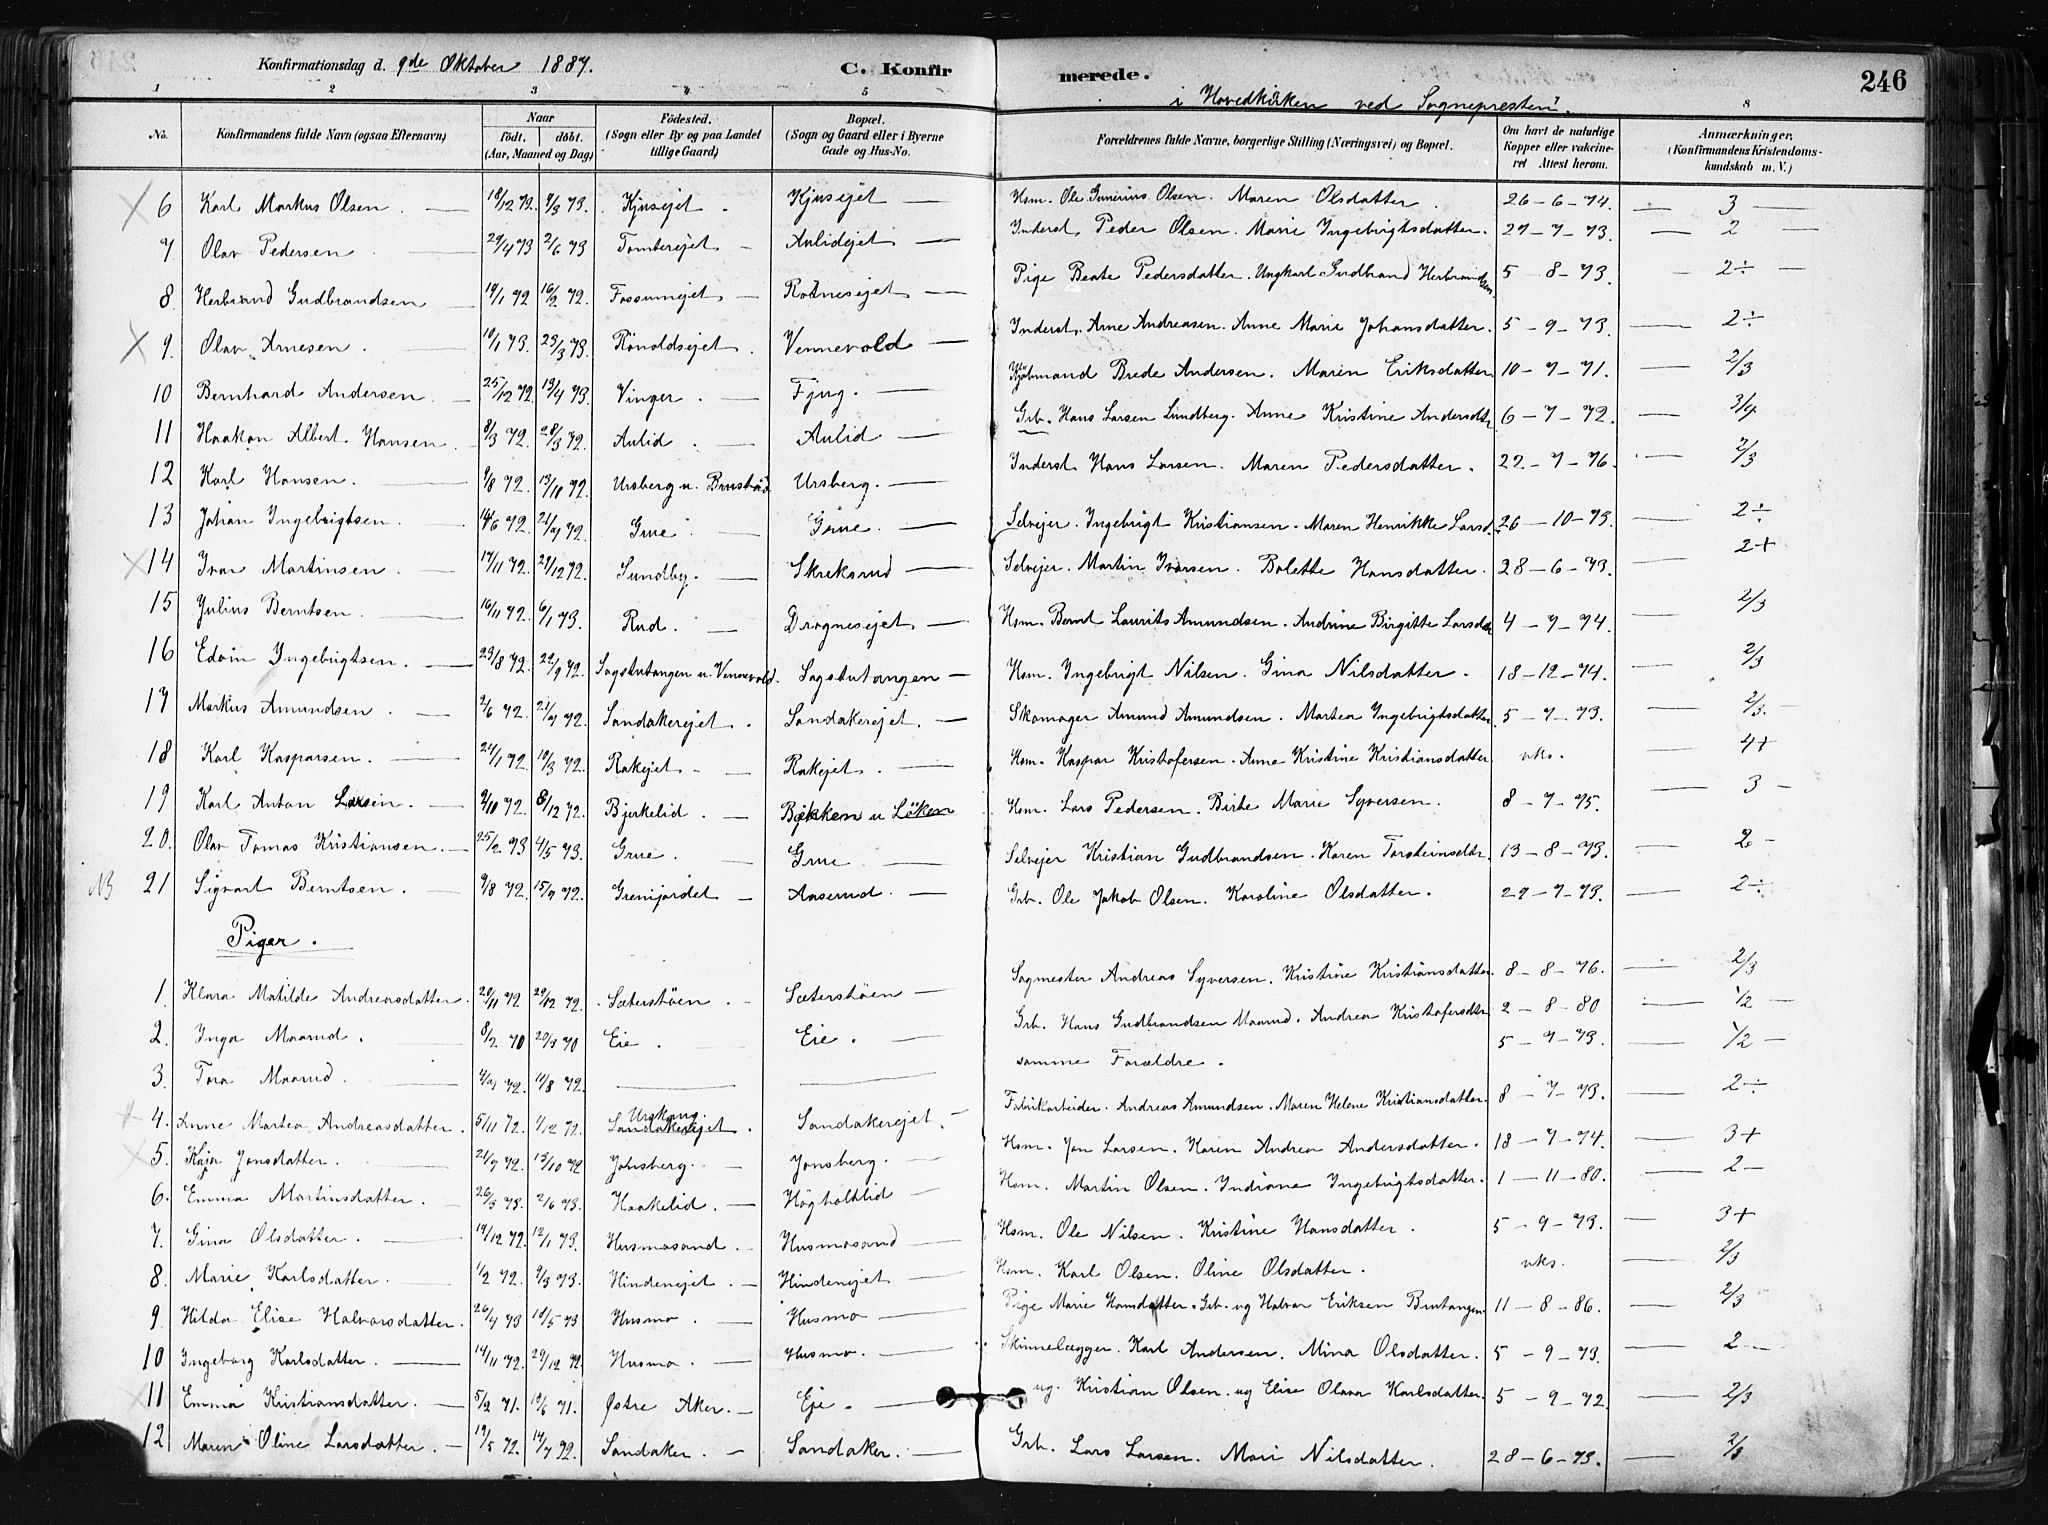 Konfirmationsdag d. 9de Oktober 1887. C. Konfirmerede. 246
i Hovedkirken ved Sognepresten.
1 2 3 4 5 8
No. Konfirmandens fulde Navn (ogsaa Efternavn) Naar født. døbt. (Aar, Maaned og Dag) Fødested. (Sogn eller By og paa Landet tillige Gaard) Bopæl. (Sogn og Gaard eller i Byerne Gade og Hus-No. Forældrenes fulde Navne, borgerlige Stilling (Næringsvei) og Bopæl. Om havt de naturlige Kopper eller vakcineret Attest herom. Anmærkninger. (Konfirmandens Kristendomskundskab m. V.)
6 Karl Markus Olsen. 18/12 72. 9/3 73. Kjusejet. Kjusejet Hsm. Ole Gunerius Olsen. Maren Olsdatter. 26-6-74. 3
7 Olav Pedersen 29/4 73 2/6 73 Tomterejet Aulidejet Inderst. Peder Olsen. Marie Ingebrigtsdatter. 27-7-73. 2
8. Herbrand Gudbrandsen 14/1 72 16/2 72. Fossumejet Rotnesejet Pige Beate Pedersdatter. Ungkarl Gudbrand Herbrandsen. 5-8-73. 2÷
9. Olav Arnesen. 10/1 73. 23/3 73. Rönoldsejet. Vennevold Inderst. Arne Andreasen. Anne Marie Johansdatter. 5-9-73. 2÷
10 Bernhard Andersen 25/12 72. 13/4 73. Vinger. Fjug. Kjöbmand Brede Andersen. Maren Eriksdatter 10-7-71. 2/3
11 Haakon Albert Hansen. 8/3 72. 28/3 72. Aulid. Aulid Grb. Hans Larsen Lundberg. Anne Kristine Andersdtr 6-7-72. 3/4
12 Karl Hansen. 9/8 72. 13/10 72. Ursberg u. Brustad Ursberg. Inderst. Hans Larsen. Maren Pedersdatter. 22-7-76. 2/3
13 Johan Ingebrigtsen. 14/6 72. 21/7 72. Grue. Grue. Selvejer. Ingebrigt Kristiansen. Maren Henrikke Larsd. 26-10-73. 2÷
14 Ivar Martinsen. 17/11 72. 29/12 72. Sundby. Skreksrud Selvejer. Martin Ivarsen. Bolette Hansdatter. 28-6-73. 2+
15 Julius Berntsen. 16/11 72. 6/1 73. Rud. Drognesejet Hsm. Bernt Laurits Amundsen. Andrine Birgitte Larsdtr 4-7-74. 2/3
16 Edvin Ingebrigtsen. 23/8 72. 22/9 72. Sagstutangen u. Vennevold. Sagstutangen Hsm. Ingebrigt Nilsen. Gina Nilsdatter. 18-12-74. 2/3
17 Markus Amundsen. 2/6 72. 21/7 72. Sandakerejet. Sandakerejet. Skomager Amund Amundsen. Martea Ingebrigtsdatter. 5-7-73. 2/3.
18 Karl Kasparsen. 24/1 72. 10/3 72. Rakejet Rakejet. Hsm. Kaspar Kristofersen. Anne Kristine Kristiansdatter vks. 4+
19 Karl Anton Larsen. 9/10 72. 8/12 72. Bjerkelid. Bækken u Löken Hsm. Lars Pedersen. Birte Marie Syversen. 8-7-75. 3
20. Olav Tomas Kristiansen. 25/2 73 4/5 73. Grue. Grue Selvejer Kristian Gudbrandsen. Karen Torsteinsdtr. 13-8-73. 2
NB 21 Sigvart Berntsen. 9/8 72. 15/9 72. Grenijordet Aaserud. Grb. Ole Jakob Olsen. Karoline Olsdatter. 29-7-73. 2÷
Piger.
1. Klara Matilde Andreasdatter. 20/11 72 29/12 72. Sæterstöen. Sæterstöen Sagmester Andreas Syversen. Kristine Kristiansdatter. 8-8-76. 2/3
2. Inga Maarud. 8/2 70 20/3 70 Eie. Eie. Grb. Hans Gudbrandsen Maarud. Andrea Kristofersdtr 2-8-80 1/2
3. Tora Maarud. 4/7 72. 11/8 72. samme Forældre. 5-9-73. 1/2
4. Anne Martea Andreasdatter. 5/11 72. 1/12 72. Urskoug. Sandakerejet. Sandakerejet. Fabrikarbeider. Andreas Amundsen. Maren Helene Kristiansdatter. 8-7-73. 2÷
5. Kaja Jonsdatter. 21/7 72. 13/10 72 Johsberg. Jonsberg. Hsm. Jon Larsen. Karen Andrea Andersdatter. 18-7-74. 3+
6. Emma Martinsdatter. 26/3 73. 2/6 73. Haakelid. Högholtlid Hsm. Martin Olsen. Indiane Ingebrigtsdatter. 1-11-80. 2
7. Gina Olsdatter. 14/12 72. 12/1 73. Husmosand. Husmosand Hsm. Ole Nilsen. Kristine Hansdatter. 5-9-73. 3+
8. Marie Karlsdatter. 1/2 72. 9/3 73. Hindenejet. Hindenejet Hsm. Karl Olsen. Oline Olsdatter. vks. 2/3
9. Hilda Elise Halvorsdatter. 26/4 73 18/5 73 Husmo. Husmo Pige Marie Hansdatter. Grb. ug Halvor Eriksen Brutangen 11-8-86. 2/3
10 Ingeborg Karlsdatter. 14/11 72. 29/12 72. Husmo. Husmo. Skinnelægger. Karl Andersen. Mina Olsdatter. 5-9-73. 2
11 Emma Kristiansdatter. 5/2 71. 19/6 71. Østre Aker. Eje. ug. Kristian Olsen. ug Elise Olava Karlsdatter. 5-9-72. 2/3
12 Maren Oline Larsdatter. 19/5 72. 14/7 72. Sandaker. Sandaker. Grb. Lars Larsen. Mari Nilsdatter. 28-6-73. 2/3